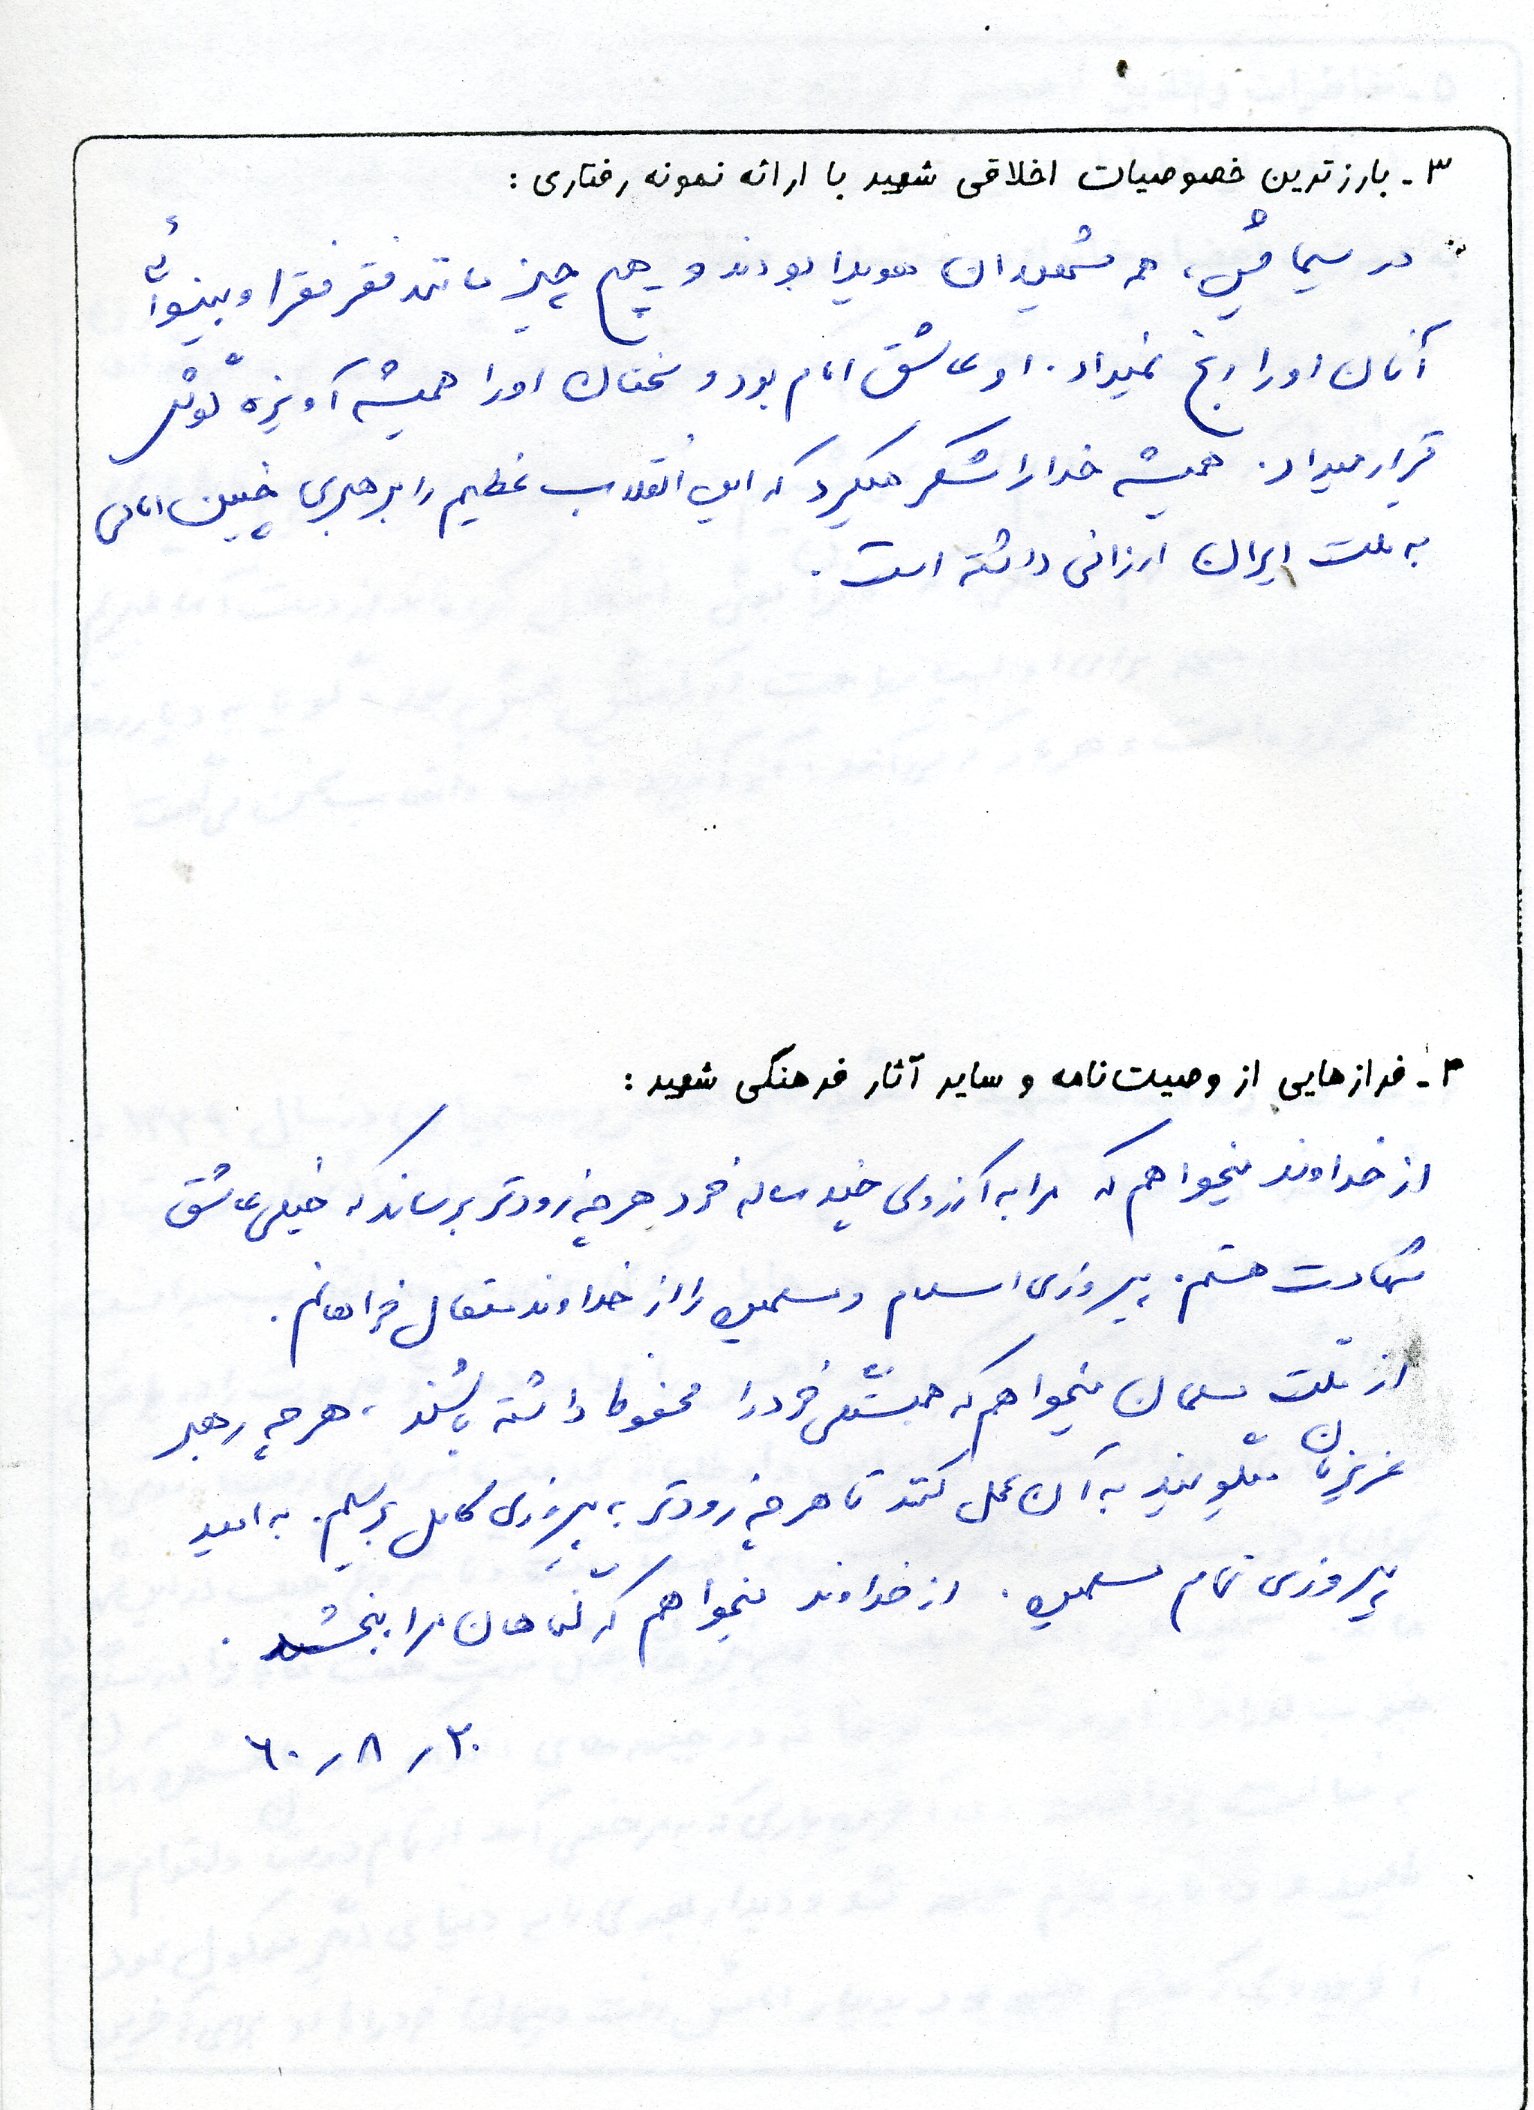 ۳ـ بارزترین خصوصیات اخلاقی شهید با ارائه نمونه رفتاری :
در سیمایش، همه شهیدان هویدا بودند و هیچ چیز مانند فقر فقرا و بینوائی
آنان او را رنج نمیداد. او عاشق امام بود و سخنان او را همیشه آویزه گوش
قرار میداد. همیشه خدا را شکر میکرد که این انقلاب عظیم را برهبری چنین امامی
به ملت ایران ارزانی داشته است.
۴ـ فرازهایی از وصیت‌نامه و سایر آثار فرهنگی شهید :
از خداوند میخواهم که مرا به آرزوی چند ساله خود هر چه زودتر برساند که خیلی عاشق
شهادت هستم. پیروزی اسلام و مسلمین را از خداوند متعال خواهانم.
از ملت مسلمان میخواهم که همبستگی خود را محفوظ داشته باشند، هر چه رهبر
عزیزمان میگویند به آن عمل کنند تا هر چه زودتر به پیروزی کامل برسیم. به امید
پیروزی تمام مسلمین. از خداوند میخواهم که گناهان مرا ببخشد.
۲۰ر۸ر۶۰